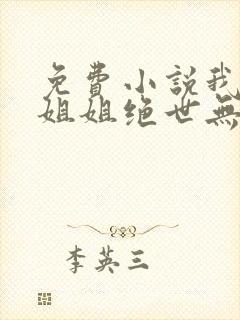 免費小説我
姐姐绝世無
李英三